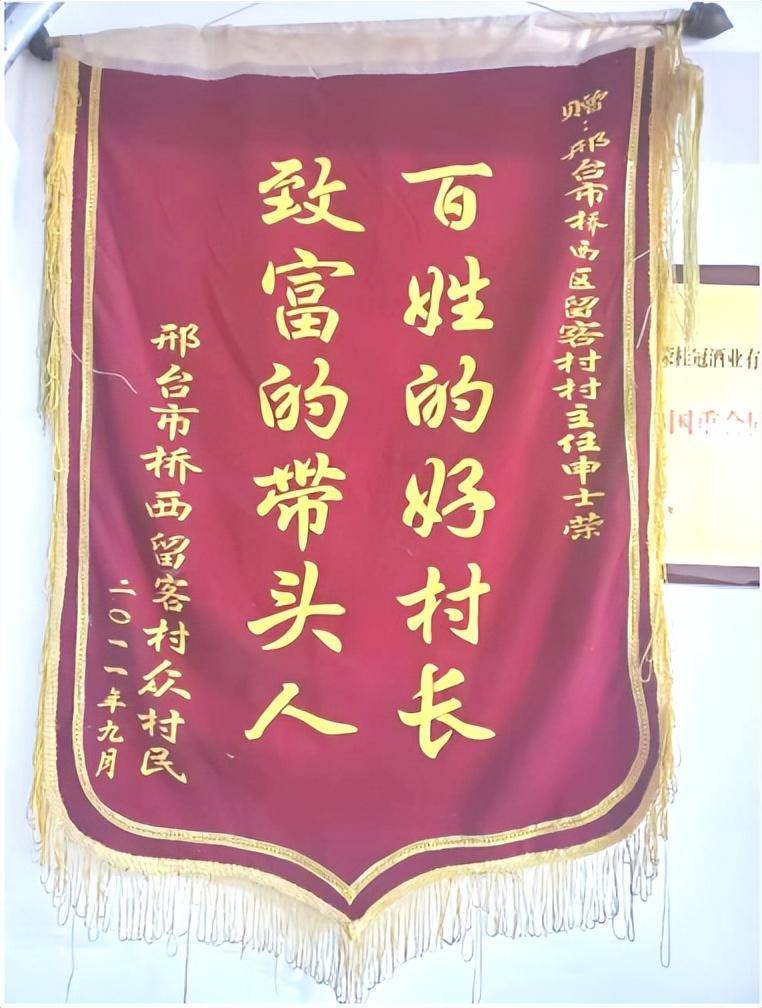 赠：邢台市桥西区留客村村主任申士荣
百姓的好村长
致富的带头人
邢台市桥西留客村众村民
二〇一一年九月
桂冠酒业有
国